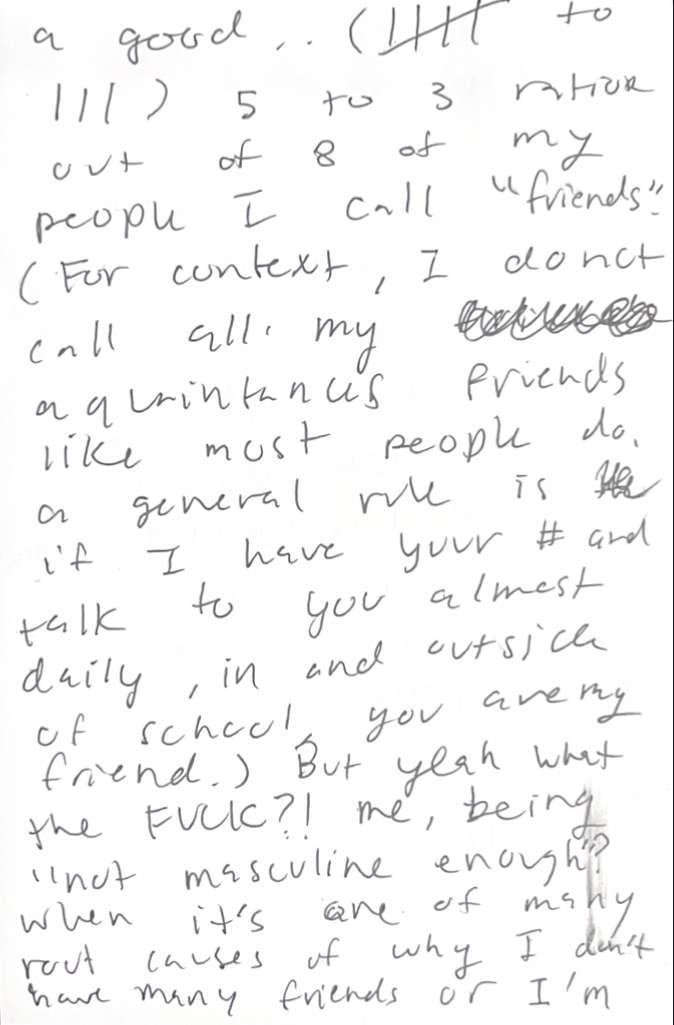 a good .. (~~||||~~ to
|||) 5 to 3 ration
out of 8 of my
people I call "friends".
(For context, I do not
call all. my
aquaintances friends
like most people do.
a general rule is
if I have your # and
talk to you almost
daily, in and outside
of school, you are my
friend.) But yeah what
the FUCK?! me, being
"not masculine enough"?
when it's one of many
root causes of why I don't
have many friends or I'm